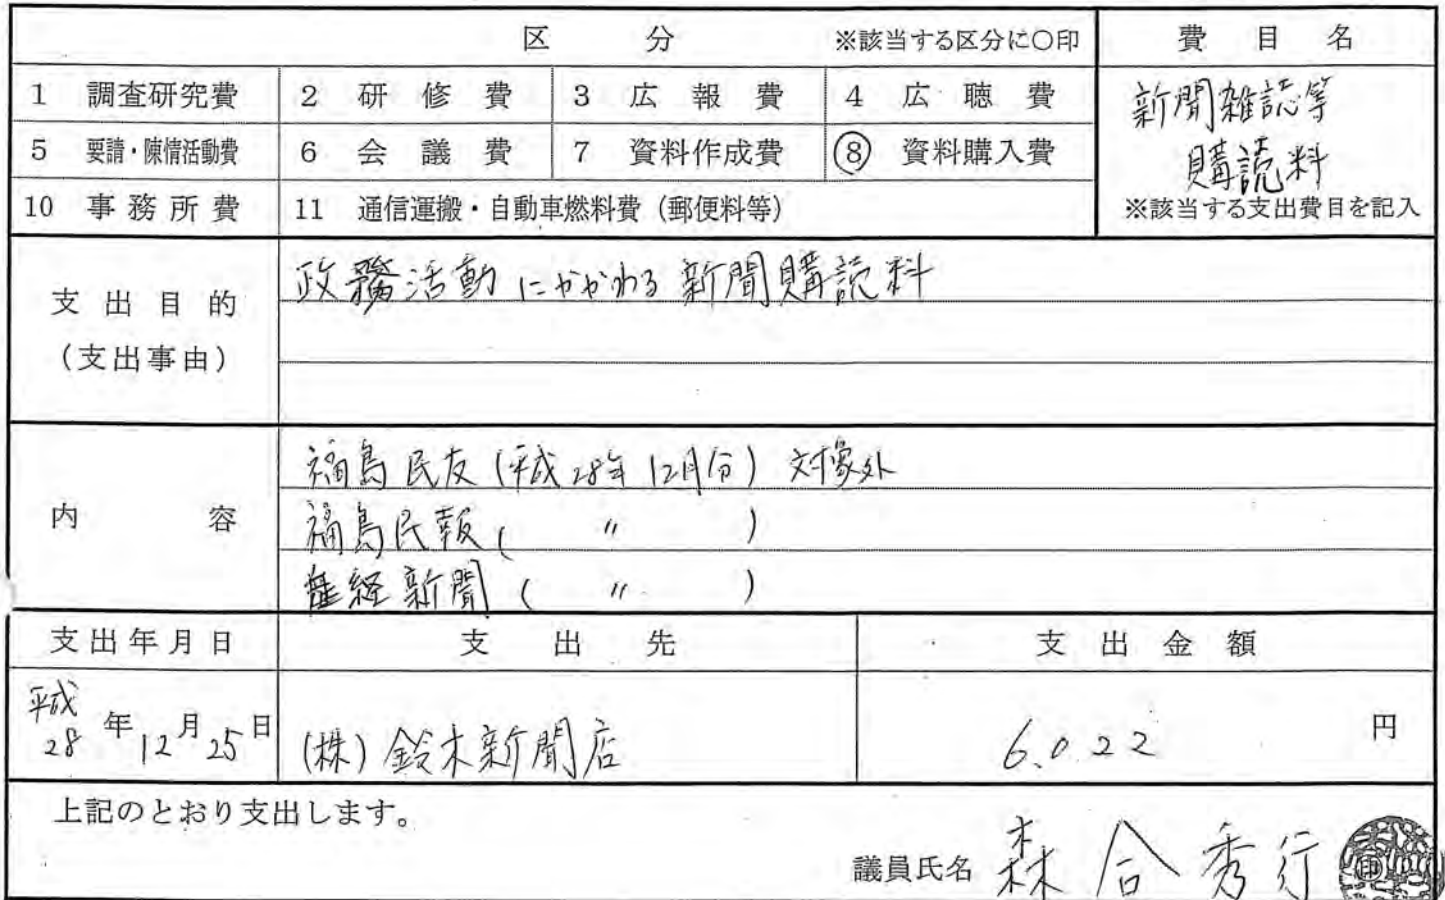 区分 ※該当する区分に○印 費目名
1 調査研究費 2 研修費 3 広報費 4 広聴費 新聞雑誌等
5 要請・陳情活動費 6 会議費 7 資料作成費 ⑧ 資料購入費 購読料
10 事務所費 11 通信運搬・自動車燃料費(郵便料等) ※該当する支出費目を記入
支出目的 政務活動にかかわる新聞購読料
(支出事由)
福島民友(平成28年12月分)対象外
内容 福島民報(〃)
産経新聞(〃)
支出年月日 支出先 支出金額
平成28年12月25日 (株)鈴木新聞店 6,022円
上記のとおり支出します。
議員氏名 森合秀行 印